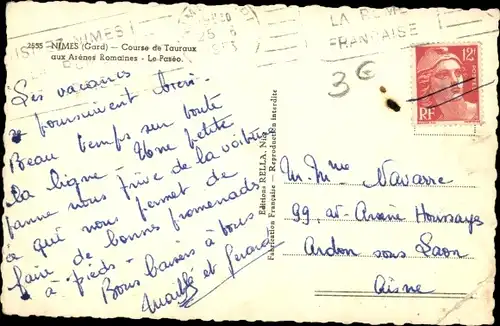 LA
FRANÇAISE
2555 - NIMES (Gard) - Course de Taureaux
aux Arènes Romaines - Le Paséo.
12F
RF
3€
Les vacances
se poursuivent bien.
Beau temps sur toute
la ligne - Une petite
panne nous prive de la voiture
ce qui nous permet de
faire de bonnes promenades
à pieds -
Bons baisers à tous
et Gérard
Editions RELLA, Nice
Fabrication Française - Reproduction interdite
M. Mme Navarre
99, av Arsène Houssaye
Ardon sous Laon
Aisne